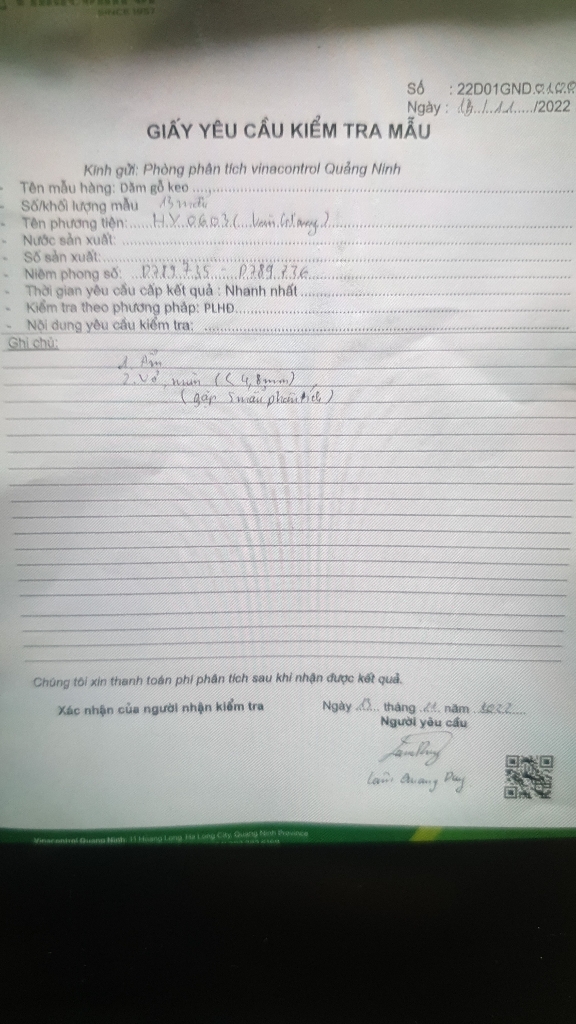 SINCE 1957
Số : 22D01GND.
Ngày : 13/11/2022
GIẤY YÊU CẦU KIỂM TRA MẪU
Kính gửi: Phòng phân tích vinacontrol Quảng Ninh
- Tên mẫu hàng: Dăm gỗ keo
- Số/khối lượng mẫu 13 mẫu
- Tên phương tiện: HY 0603 (
- Nước sản xuất:
- Số sản xuất:
- Niêm phong số: D789735 - D789736
- Thời gian yêu cầu cấp kết quả : Nhanh nhất
- Kiểm tra theo phương pháp: PLHĐ
- Nội dung yêu cầu kiểm tra:
Ghi chú:
1. Ẩm
2. Vỏ, mùn (< 4,8mm)
(gấp 5 mẫu phân tích)
Chúng tôi xin thanh toán phí phân tích sau khi nhận được kết quả.
Xác nhận của người nhận kiểm tra
Ngày 13 tháng 11 năm 2022
Người yêu cầu
Quang Duy
Vinacontrol Quang Ninh: 11 Hoang Long, Ha Long City, Quang Ninh Province